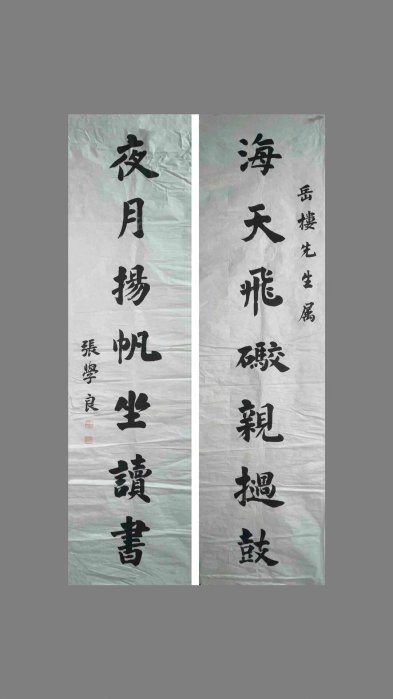 岳樓先生属
海天飛礮親撾鼓
夜月揚帆坐讀書
張學良